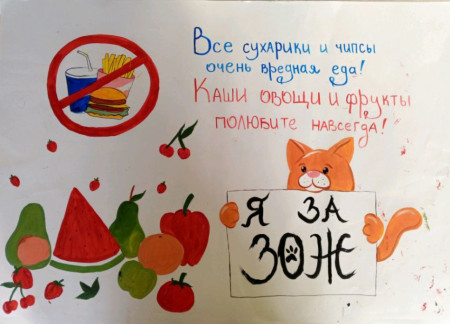 Все сухарики и чипсы
очень вредная еда!
Каши овощи и фрукты
полюбите навсегда!
Я ЗА
ЗОЖ